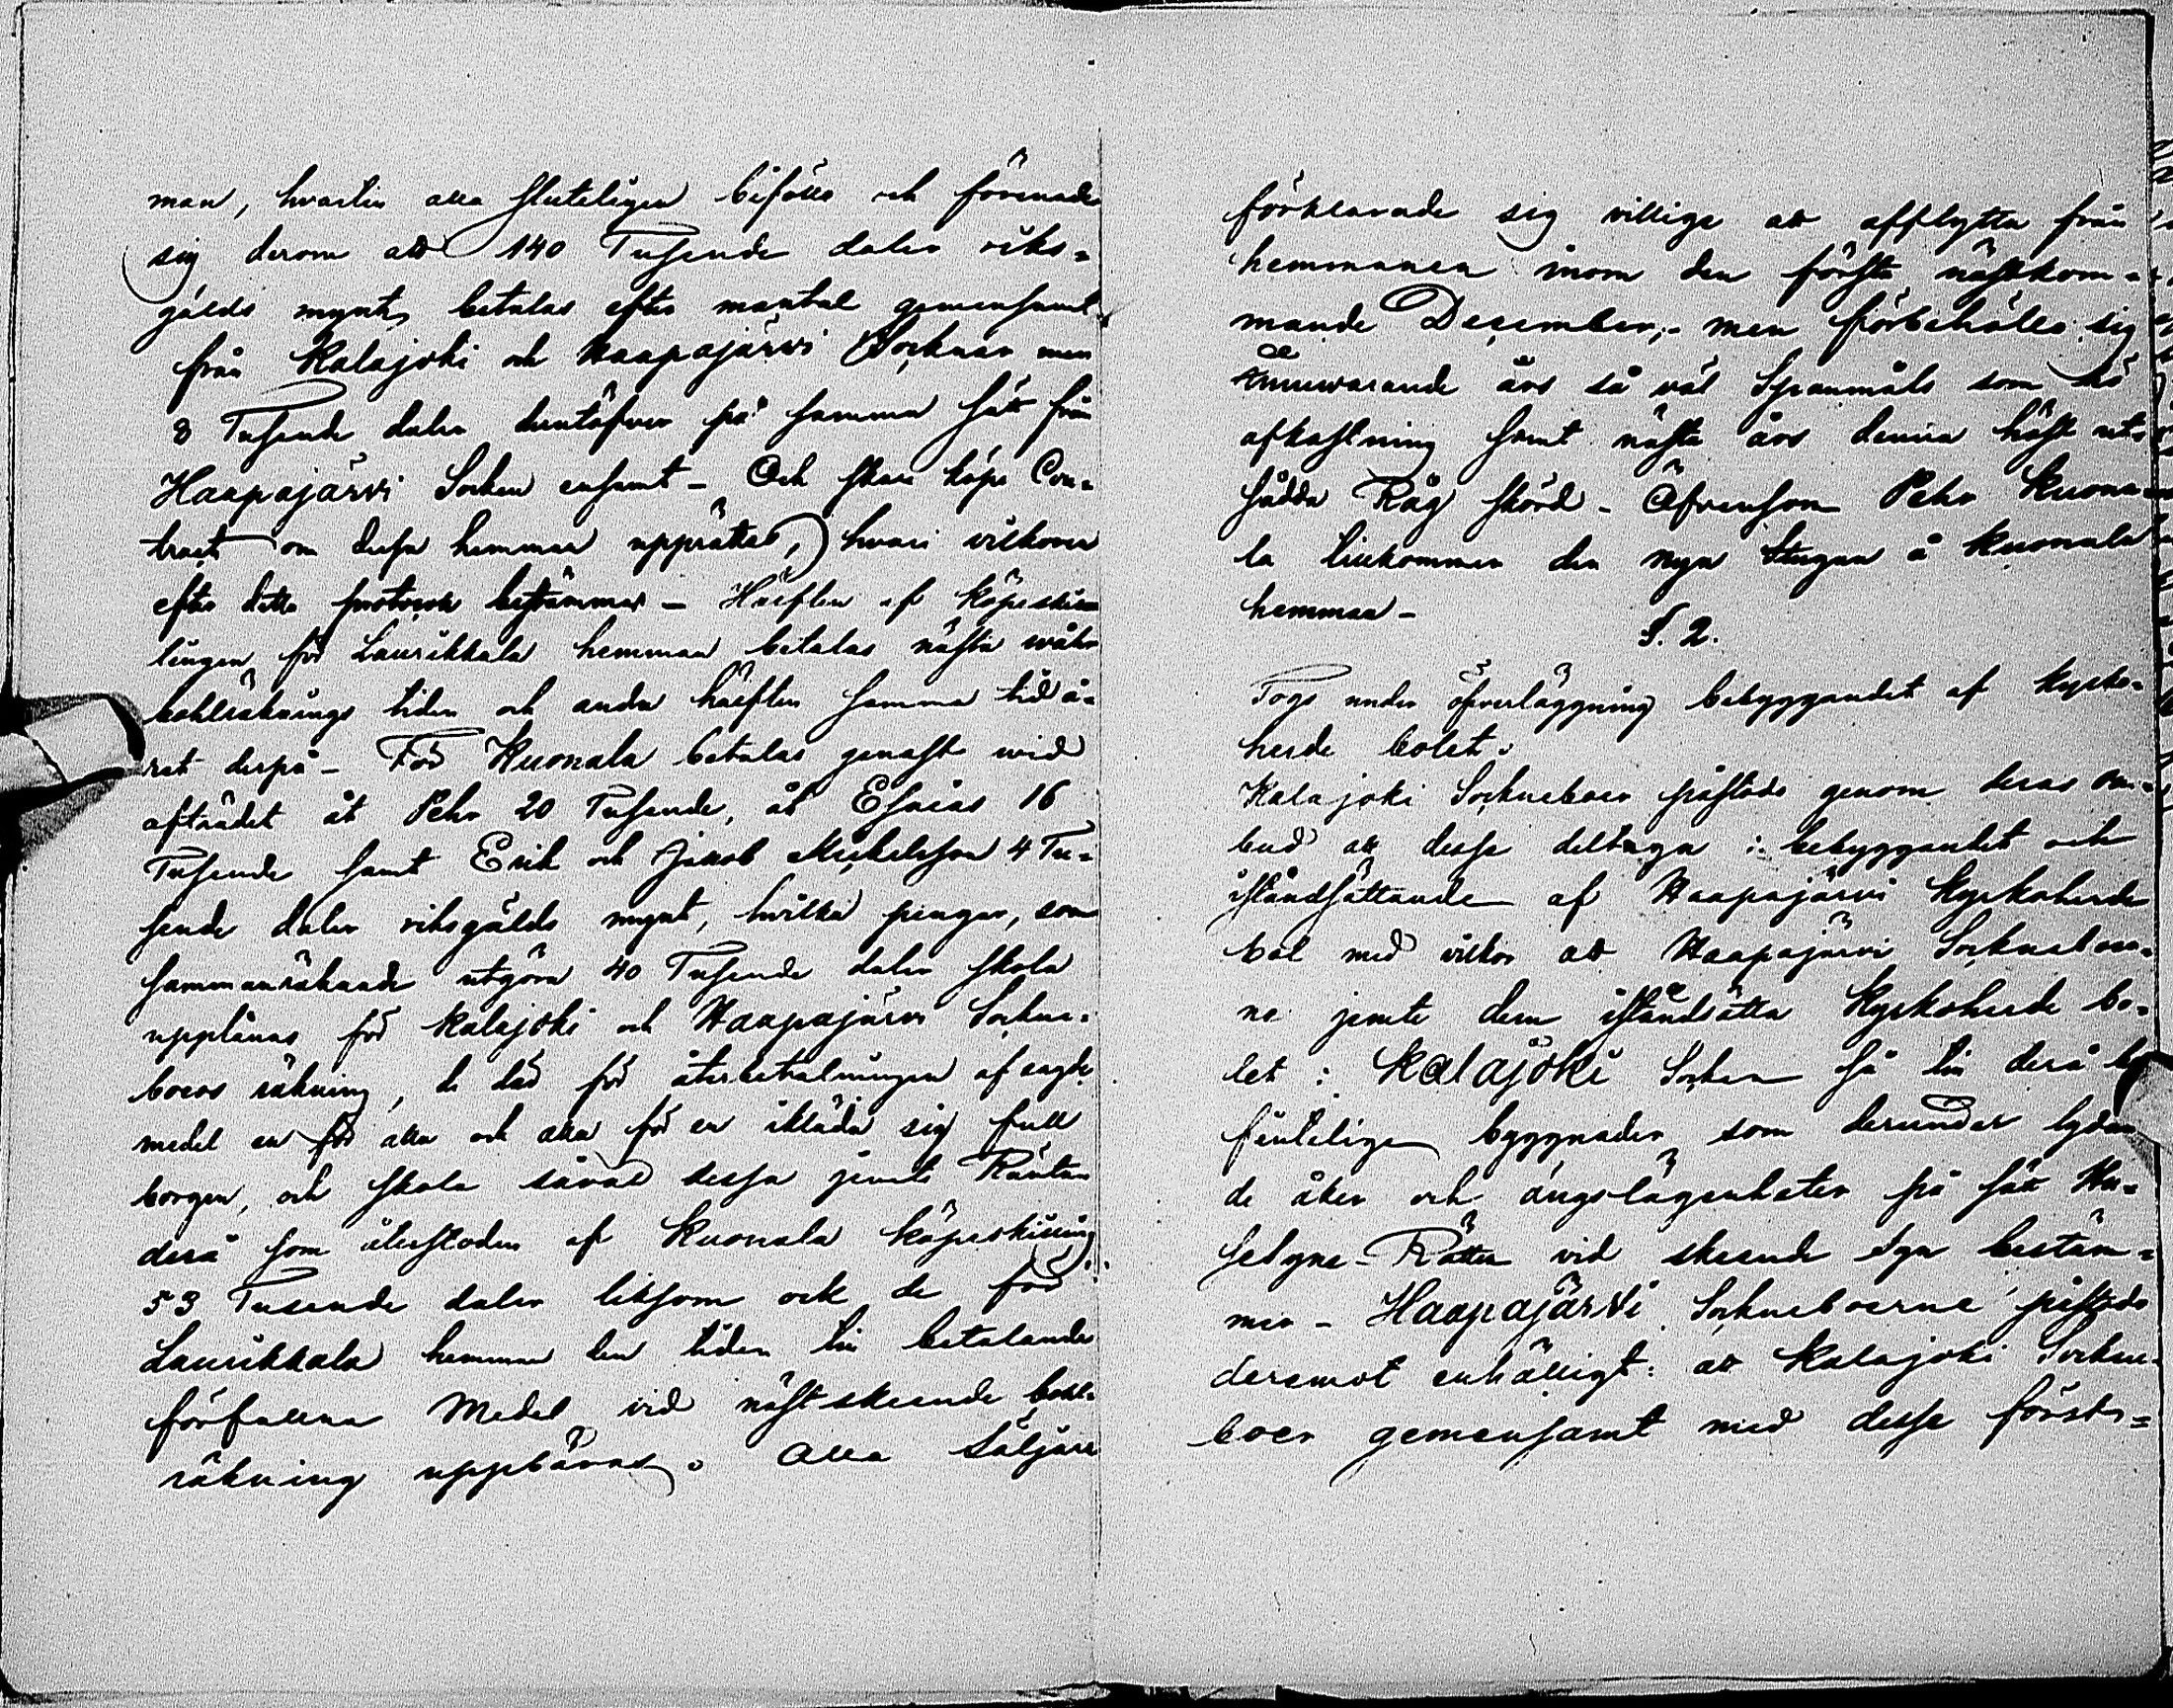 man, hvartill alla sluteligen biföllo och förenade
sig derom att 140 Tusende daler riks=
gälds mynt, betalas efter mantal gemensamt
från Kalajoki och Haapajärvi Socknar men
8 Tusende daler derutöfver på samma sätt från
Haapajärvi Socken ensamt - Och skall köpe Con=
tract om dessa hemman upprättas, hvari vilkoren
efter detta protocoll bestämmas - Hälften af köpeskil=
lingen för Laurikkala hemman betalas nästa wåhr
bohlräknings tiden och andra hälften samma tid å=
ret derpå - För Kuonala betalas genast wid
afträdet åt Pehr 20 Tusende, åt Esaias 16
Tusende samt Erik och Jakob Michelsson 4 Tu=
sende daler riksgälds mynt, hvilka pengar, som
sammanräknade utgöra 40 Tusende daler skola
upplånas för Kalajoki och Haapajärvi Sockne=
boers räkning, de där för återbetalningen af sagde
medel en för alla och alla för en ikläda sig full
borgen, och skola såväl dessa jemte Räntan
derå som återstoden af Kuonala köpeskilling
53 Tusende daler liksom ock de för
Laurikkala hemman den tiden till betalande
förfallna Medel vid nästskeende bohl=
räkning uppbäras. Alla Säljare
förklarade sig villige att afflytta från
hemmanen inom den första nästkom=
mande December,- men förbehöllo sig
innewarande års så väl Spanmåls som hö
afkastning samt nästa års denna höst ut=
sådda Råg skörd - Äfvensom Pehr Kuona=
la tillkommer den nya Stugan å Kuonala
hemman -
§. 2.
Togs under öfverläggning bebyggandet af Kyrko=
herde bolet.
Kalajoki Sockneboer påstodo genom deras om=
bud att desse deltaga i bebyggandet och
iståndsättande af Haapajärvi Kyrkoherde
bol med vilkor att Haapajärvi Socknaboer=
ne jemte dem iståndsätta Kyrkoherde bo=
let i Kalajoki Socken så till derå be
finteliga byggnader som derunder lydan
de åker och ängslägenheter på sätt Hu=
sesyns-Rätten vid skeende syn bestäm=
mer - Haapajärvi Sockneboerne påstodo
deremot enhälligt: att Kalajoki Sockne
boer gemensamt med desse först=